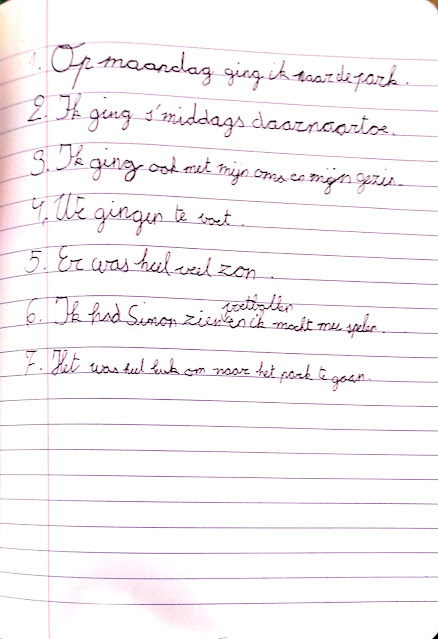 1. Op maandag ging ik naar de park.
2. Ik ging s'middags daarnaartoe.
3. Ik ging ook met mijn oma en mijn gezin.
4. We gingen te voet.
5. Er was heel veel zon.
voetballen
6. Ik had Simon zien en ik mocht mee spelen.
7. Het was heel leuk om naar het park te gaan.